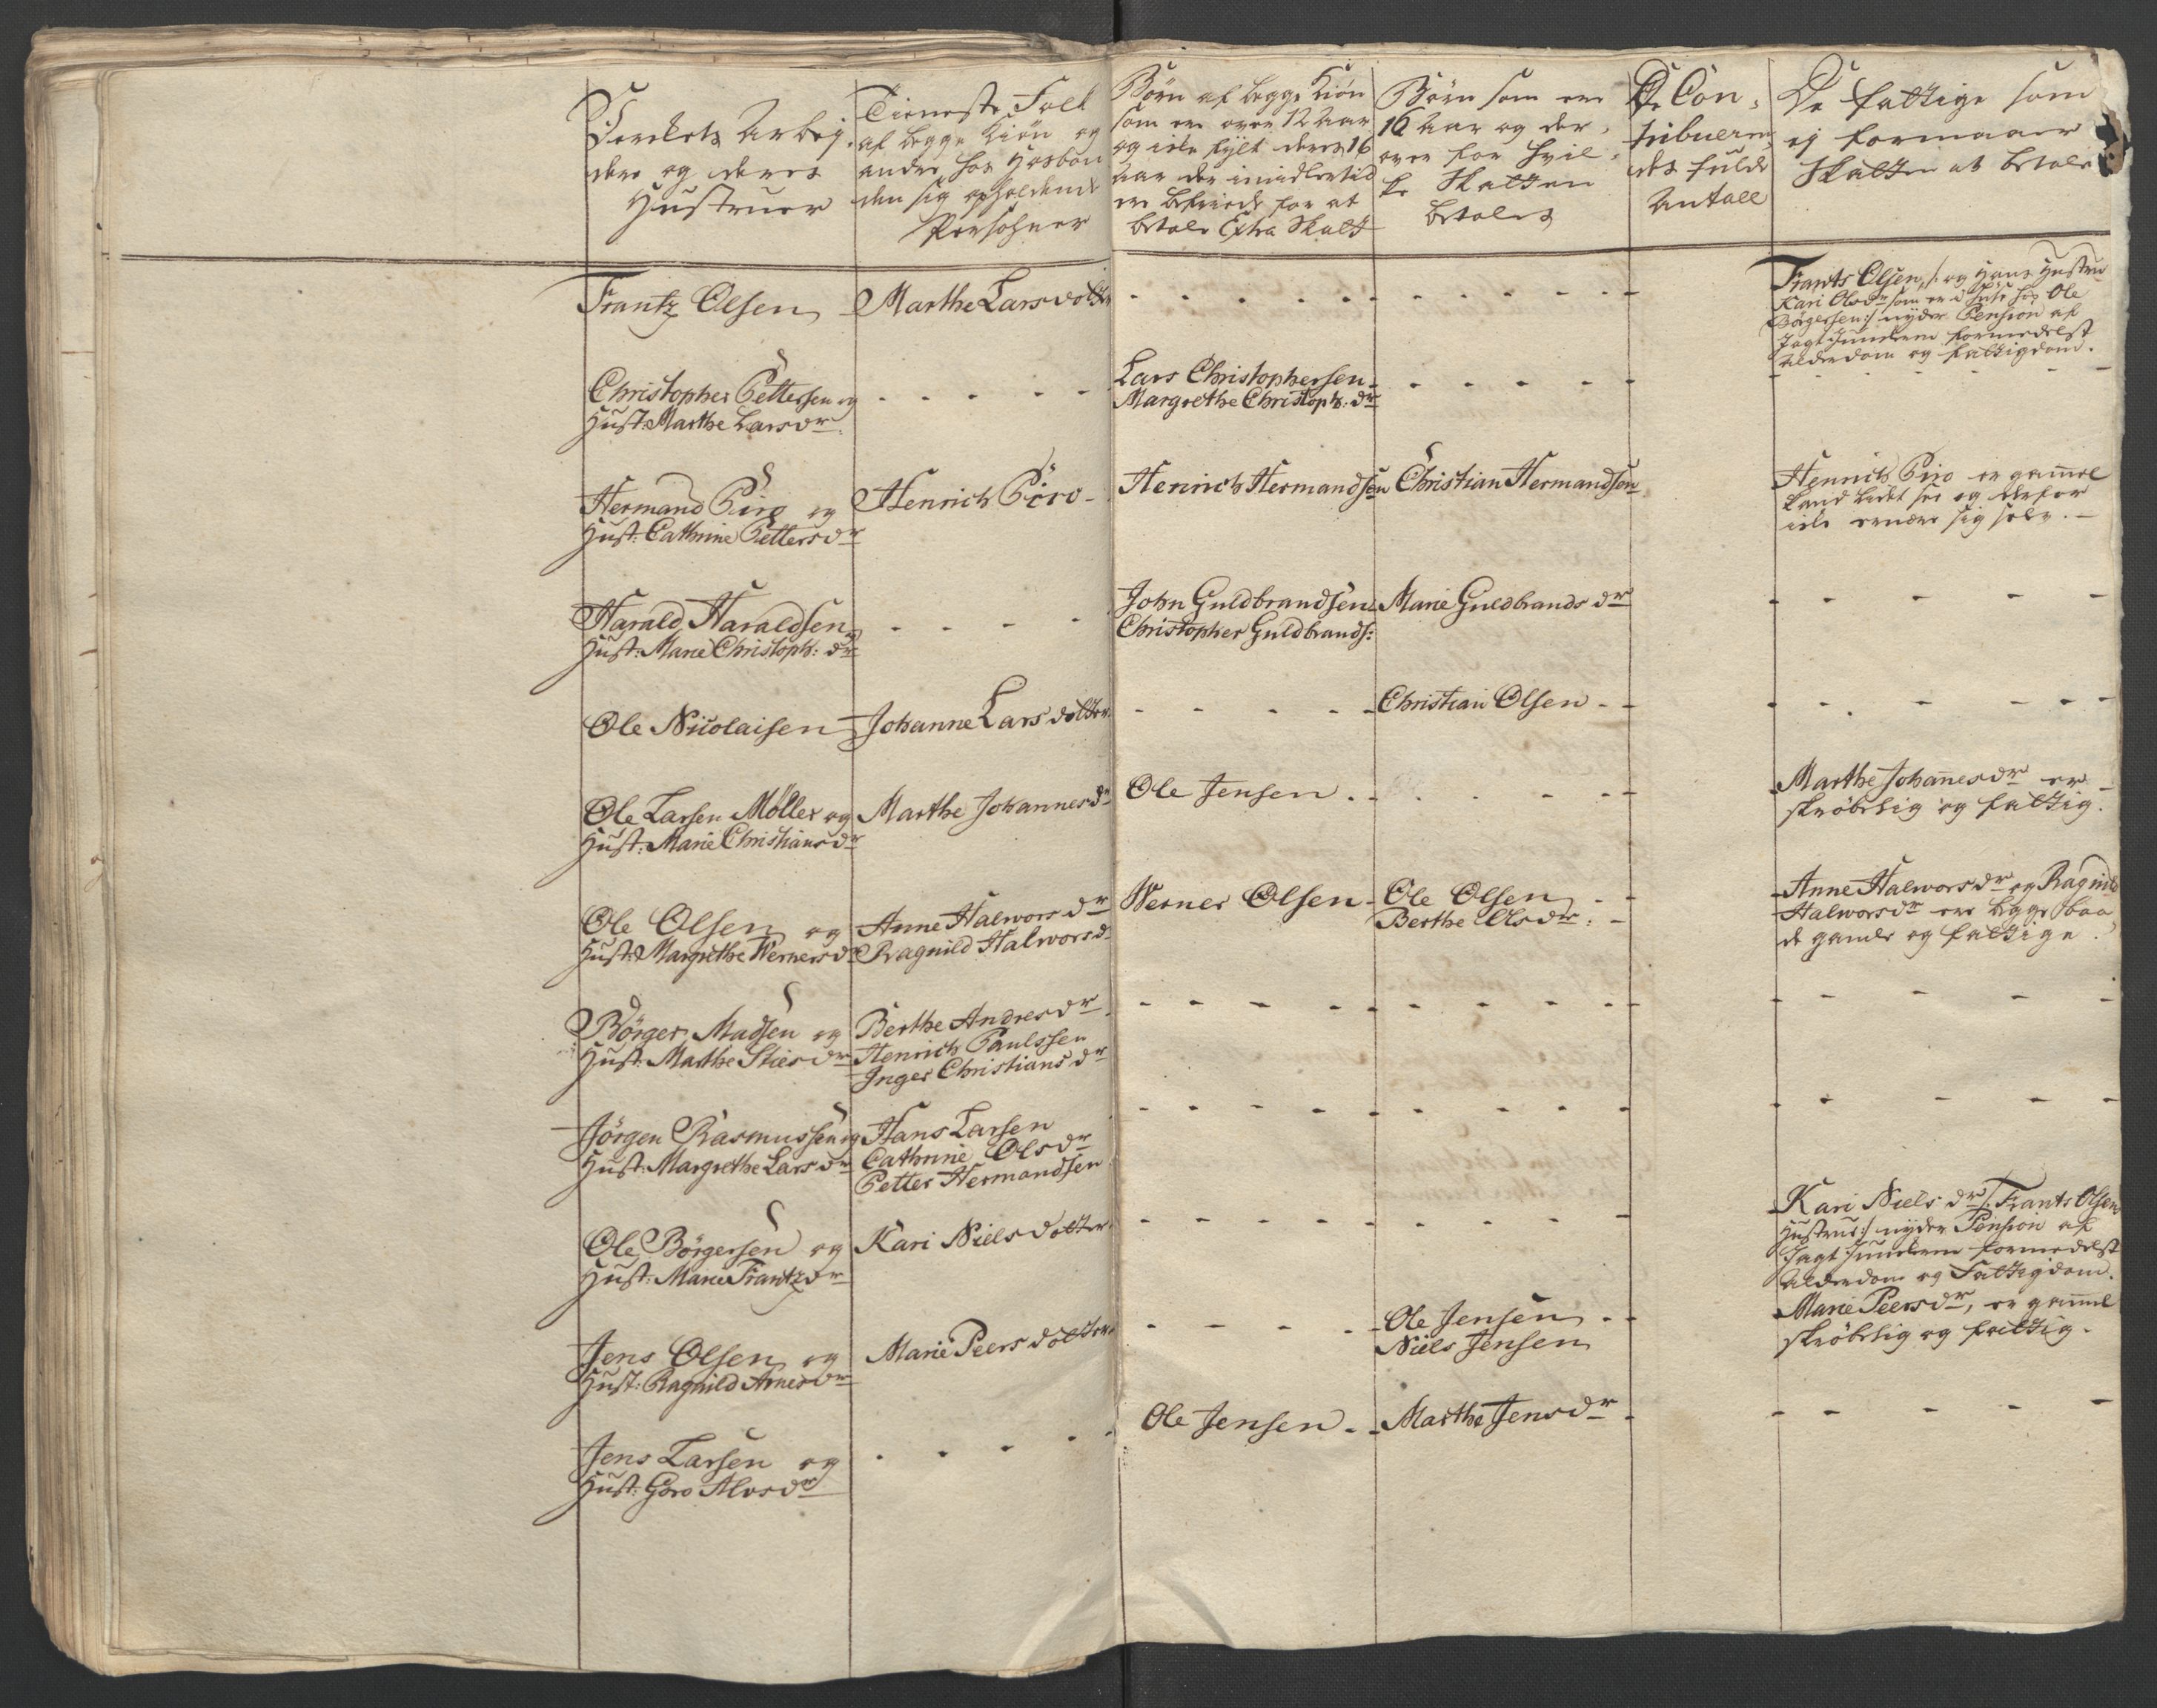 Verckets Arbej-
dere og deres
Hustruer
Tieneste Folk
af begge Kiön og
andre hos Hosbon
den sig opholdende
Persohner
Börn af begge Kiön
som ere over 12 Aar
og icke fylt deres 16
Aar der imidlertid
ere befriede for at
betale Extra Skatt
Börn som ere
16 Aar og der-
over for hvil-
ke Skatten
betales
De Con-
tribueren
des fulde
Antall
De fattige som
ej formaaer
Skatten at betale
Frantz Olsen
Marthe Larsdotter
Frants Olsen, /: og Hans Hustru
Kari Olsdr som er i huse hos Ole
Börgersen :/ nyder Pension af
Jagt Junckern formedelst
Alderdom og fattigdom.
Christopher Pettersen og
Hust: Marthe Larsdr
Lars Christophersen
Margrethe Christoph: dr
Hermand Piro og
Hust: Cathrine Pettersdr
Henrich Piro
Henrich Hermandsen
Christian Hermandsen
Henrich Piro er gammel
kand lidet see og derfor
icke ernære sig selv.
Harald Haraldsen og
Hust: Marie Christoph: dr
John Guldbrandsen
Christopher Guldbrands:
Marie Guldbrands dr
Ole Nicolaisen
Johanne Larsdotter
Christian Olsen
Ole Larsen Möller og
Hust: Marie Christiansdr
Marthe Johannesdr
Ole Jensen
Marthe Johannesdr er
skröbelig og fattig.
Ole Olsen og
Hust: Margrethe Wernersdr
Anne Halworsdr
Ragnild Halworsd
Werner Olsen
Ole Olsen
Berthe Olsdr
Anne Halworsdr og Ragnild
Halworsdr ere begge baa
de gamle og fattige.
Börger Madsen og
Hust: Marthe Stiersdr
Berthe Andresdr
Henrich Paulssen
Inger Christiansdr
Jörgen Rasmussen og
Hust: Margrethe Larsdr
Hans Larsen
Cathrine Olsdr
Petter Hermandsen
Ole Börgersen og
Hust: Marie Frantzdr
Kari Nielsdotter
Kari Niels dr /: Frants Olsens
Hustrue :/ nyder Pension af
Jagt Junckern formedelst
Alderdom og Fattigdom.
Jens Olsen og
Hust: Ragnild Arnesdr
Marie Peersdotter
Ole Jensen
Niels Jensen
Marie Peersdr, er gammel
skröbelig og fattig.
Jens Larsen og
Hust: Goro Alvsdr
Ole Jensen
Marthe Jensdr